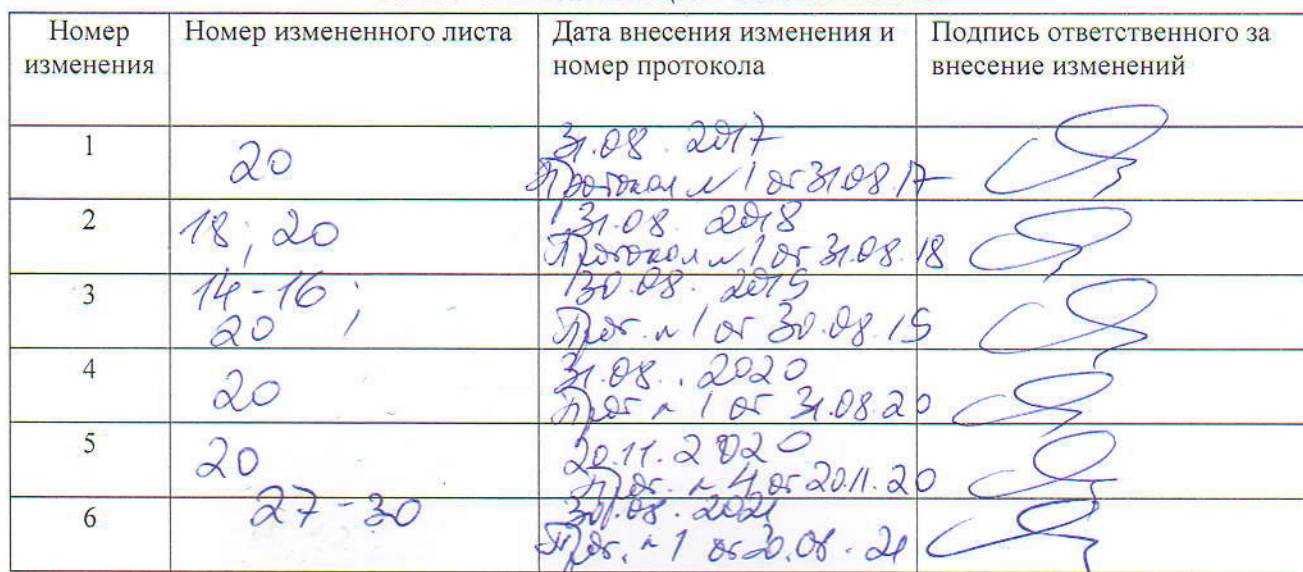 Номер изменения
Номер измененного листа
Дата внесения изменения и номер протокола
Подпись ответственного за внесение изменений
1
20
31.08.2017
Протокол №1 от 31.08.17
2
18; 20
31.08.2018
Протокол №1 от 31.08.18
3
14-16;
20
30.08.2019
Прот. №1 от 30.08.19
4
20
31.08.2020
Прот №1 от 31.08.20
5
20
20.11.2020
Прот. №4 от 20.11.20
6
27-30
30.08.2021
Прот. №1 от 30.08.21